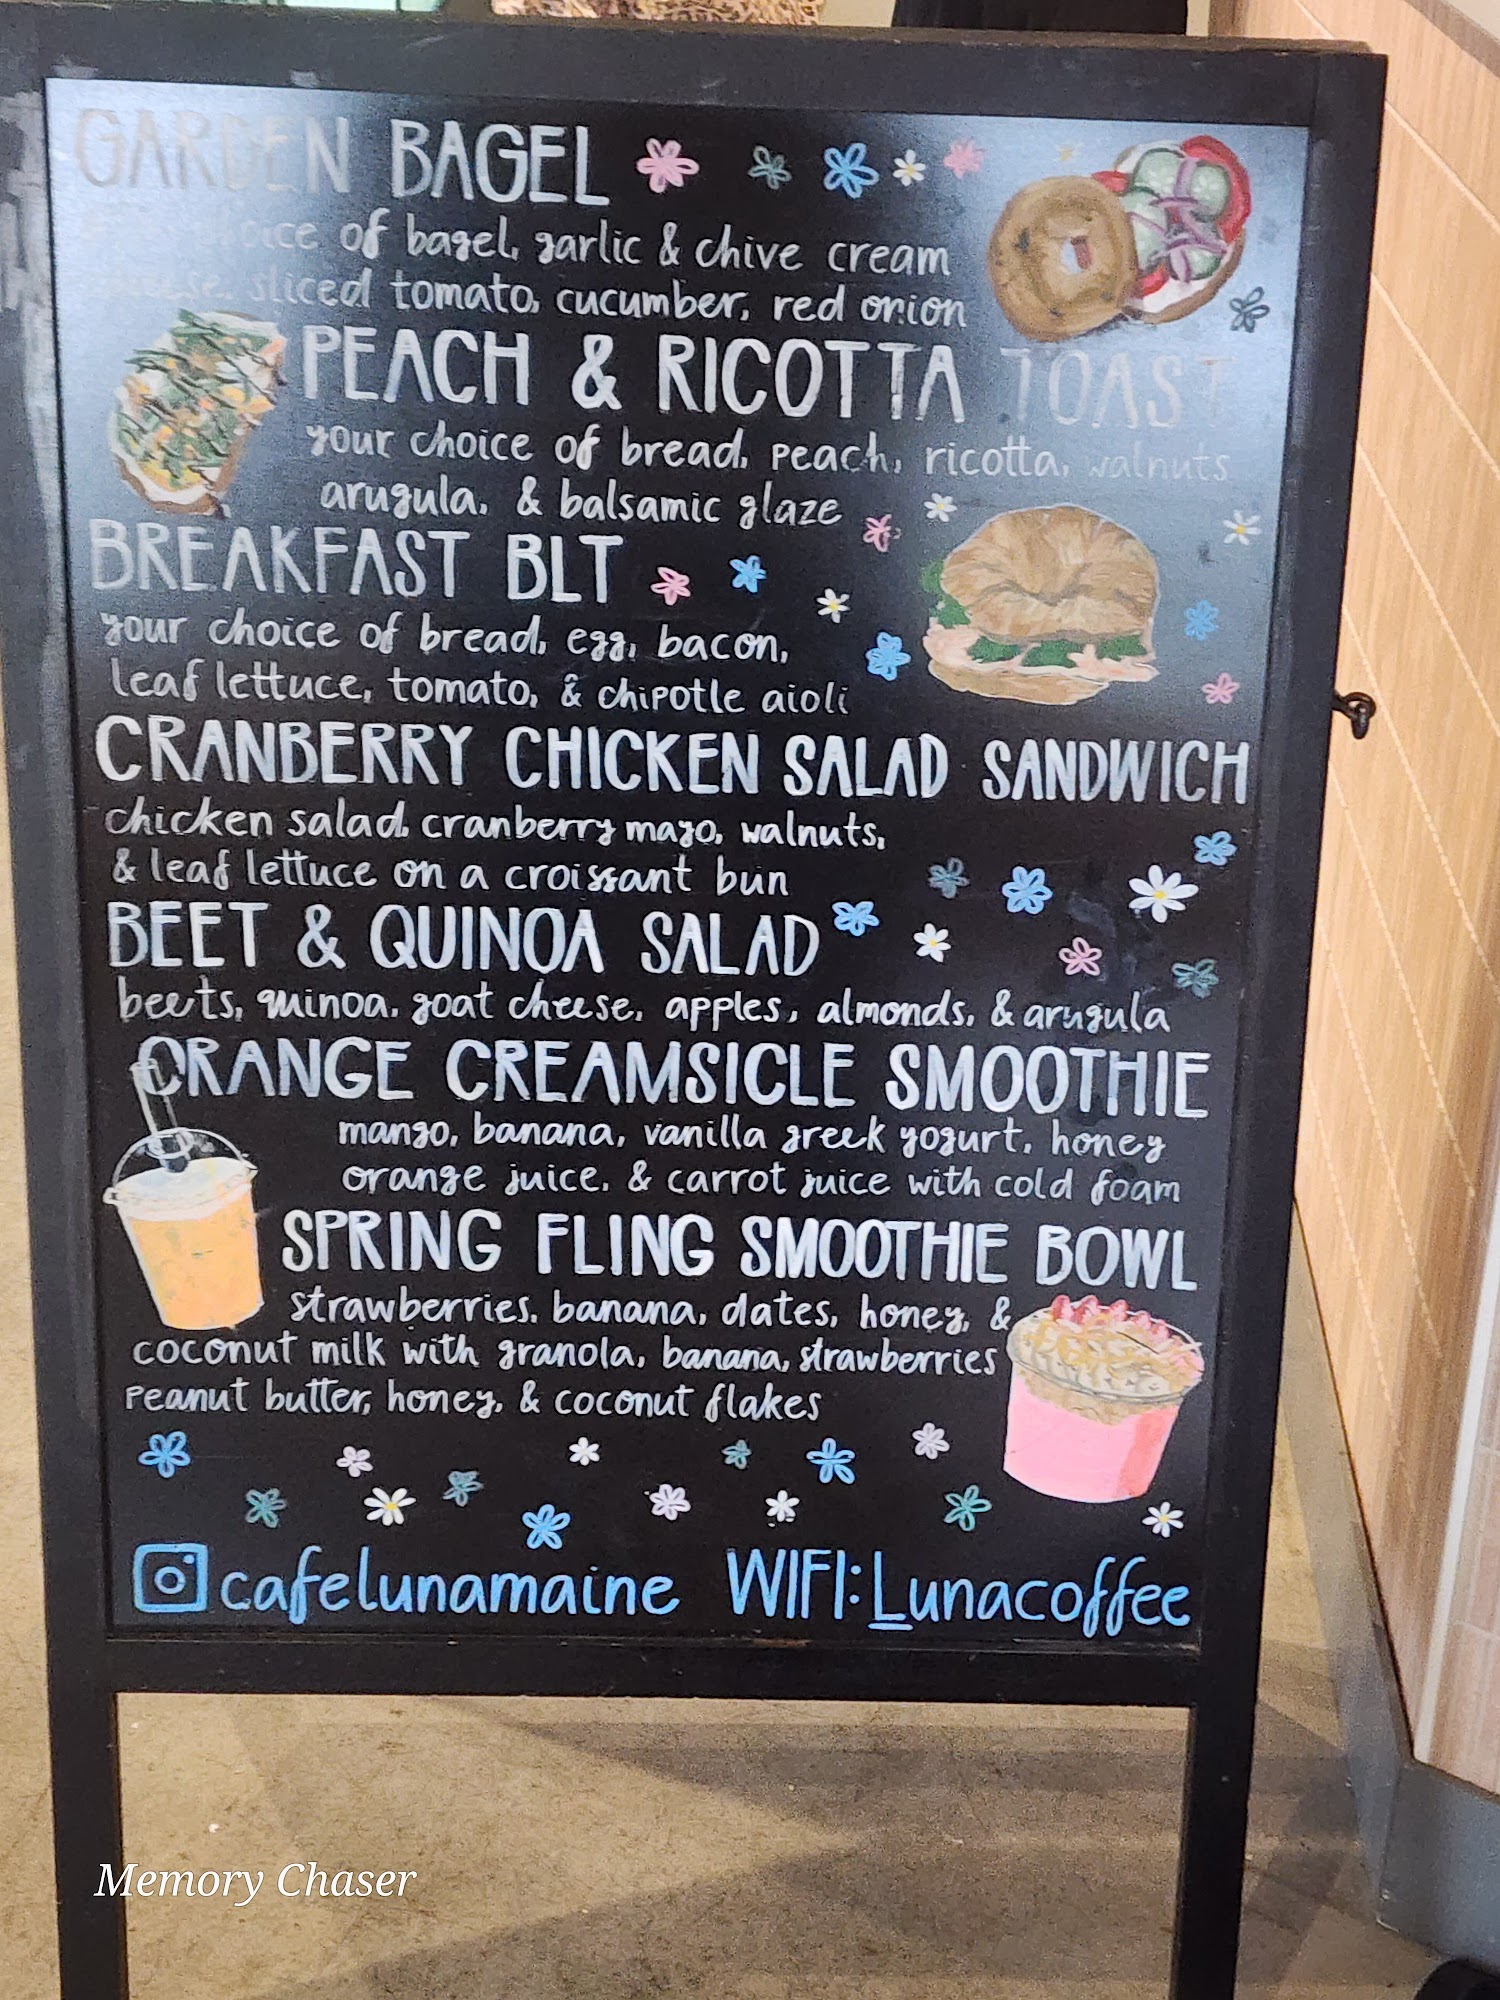 GARDEN BAGEL
choice of bagel, garlic & chive cream
cheese, sliced tomato, cucumber, red onion
PEACH & RICOTTA TOAST
your choice of bread, peach, ricotta, walnuts
arugula, & balsamic glaze
BREAKFAST BLT
your choice of bread, egg, bacon,
leaf lettuce, tomato, & chipotle aioli
CRANBERRY CHICKEN SALAD SANDWICH
chicken salad, cranberry mayo, walnuts,
& leaf lettuce on a croissant bun
BEET & QUINOA SALAD
beets, quinoa, goat cheese, apples, almonds, & arugula
ORANGE CREAMSICLE SMOOTHIE
mango, banana, vanilla greek yogurt, honey
orange juice, & carrot juice with cold foam
SPRING FLING SMOOTHIE BOWL
strawberries, banana, dates, honey, &
coconut milk with granola, banana, strawberries
peanut butter, honey, & coconut flakes
cafelunamaine WIFI: Lunacoffee
Memory Chaser